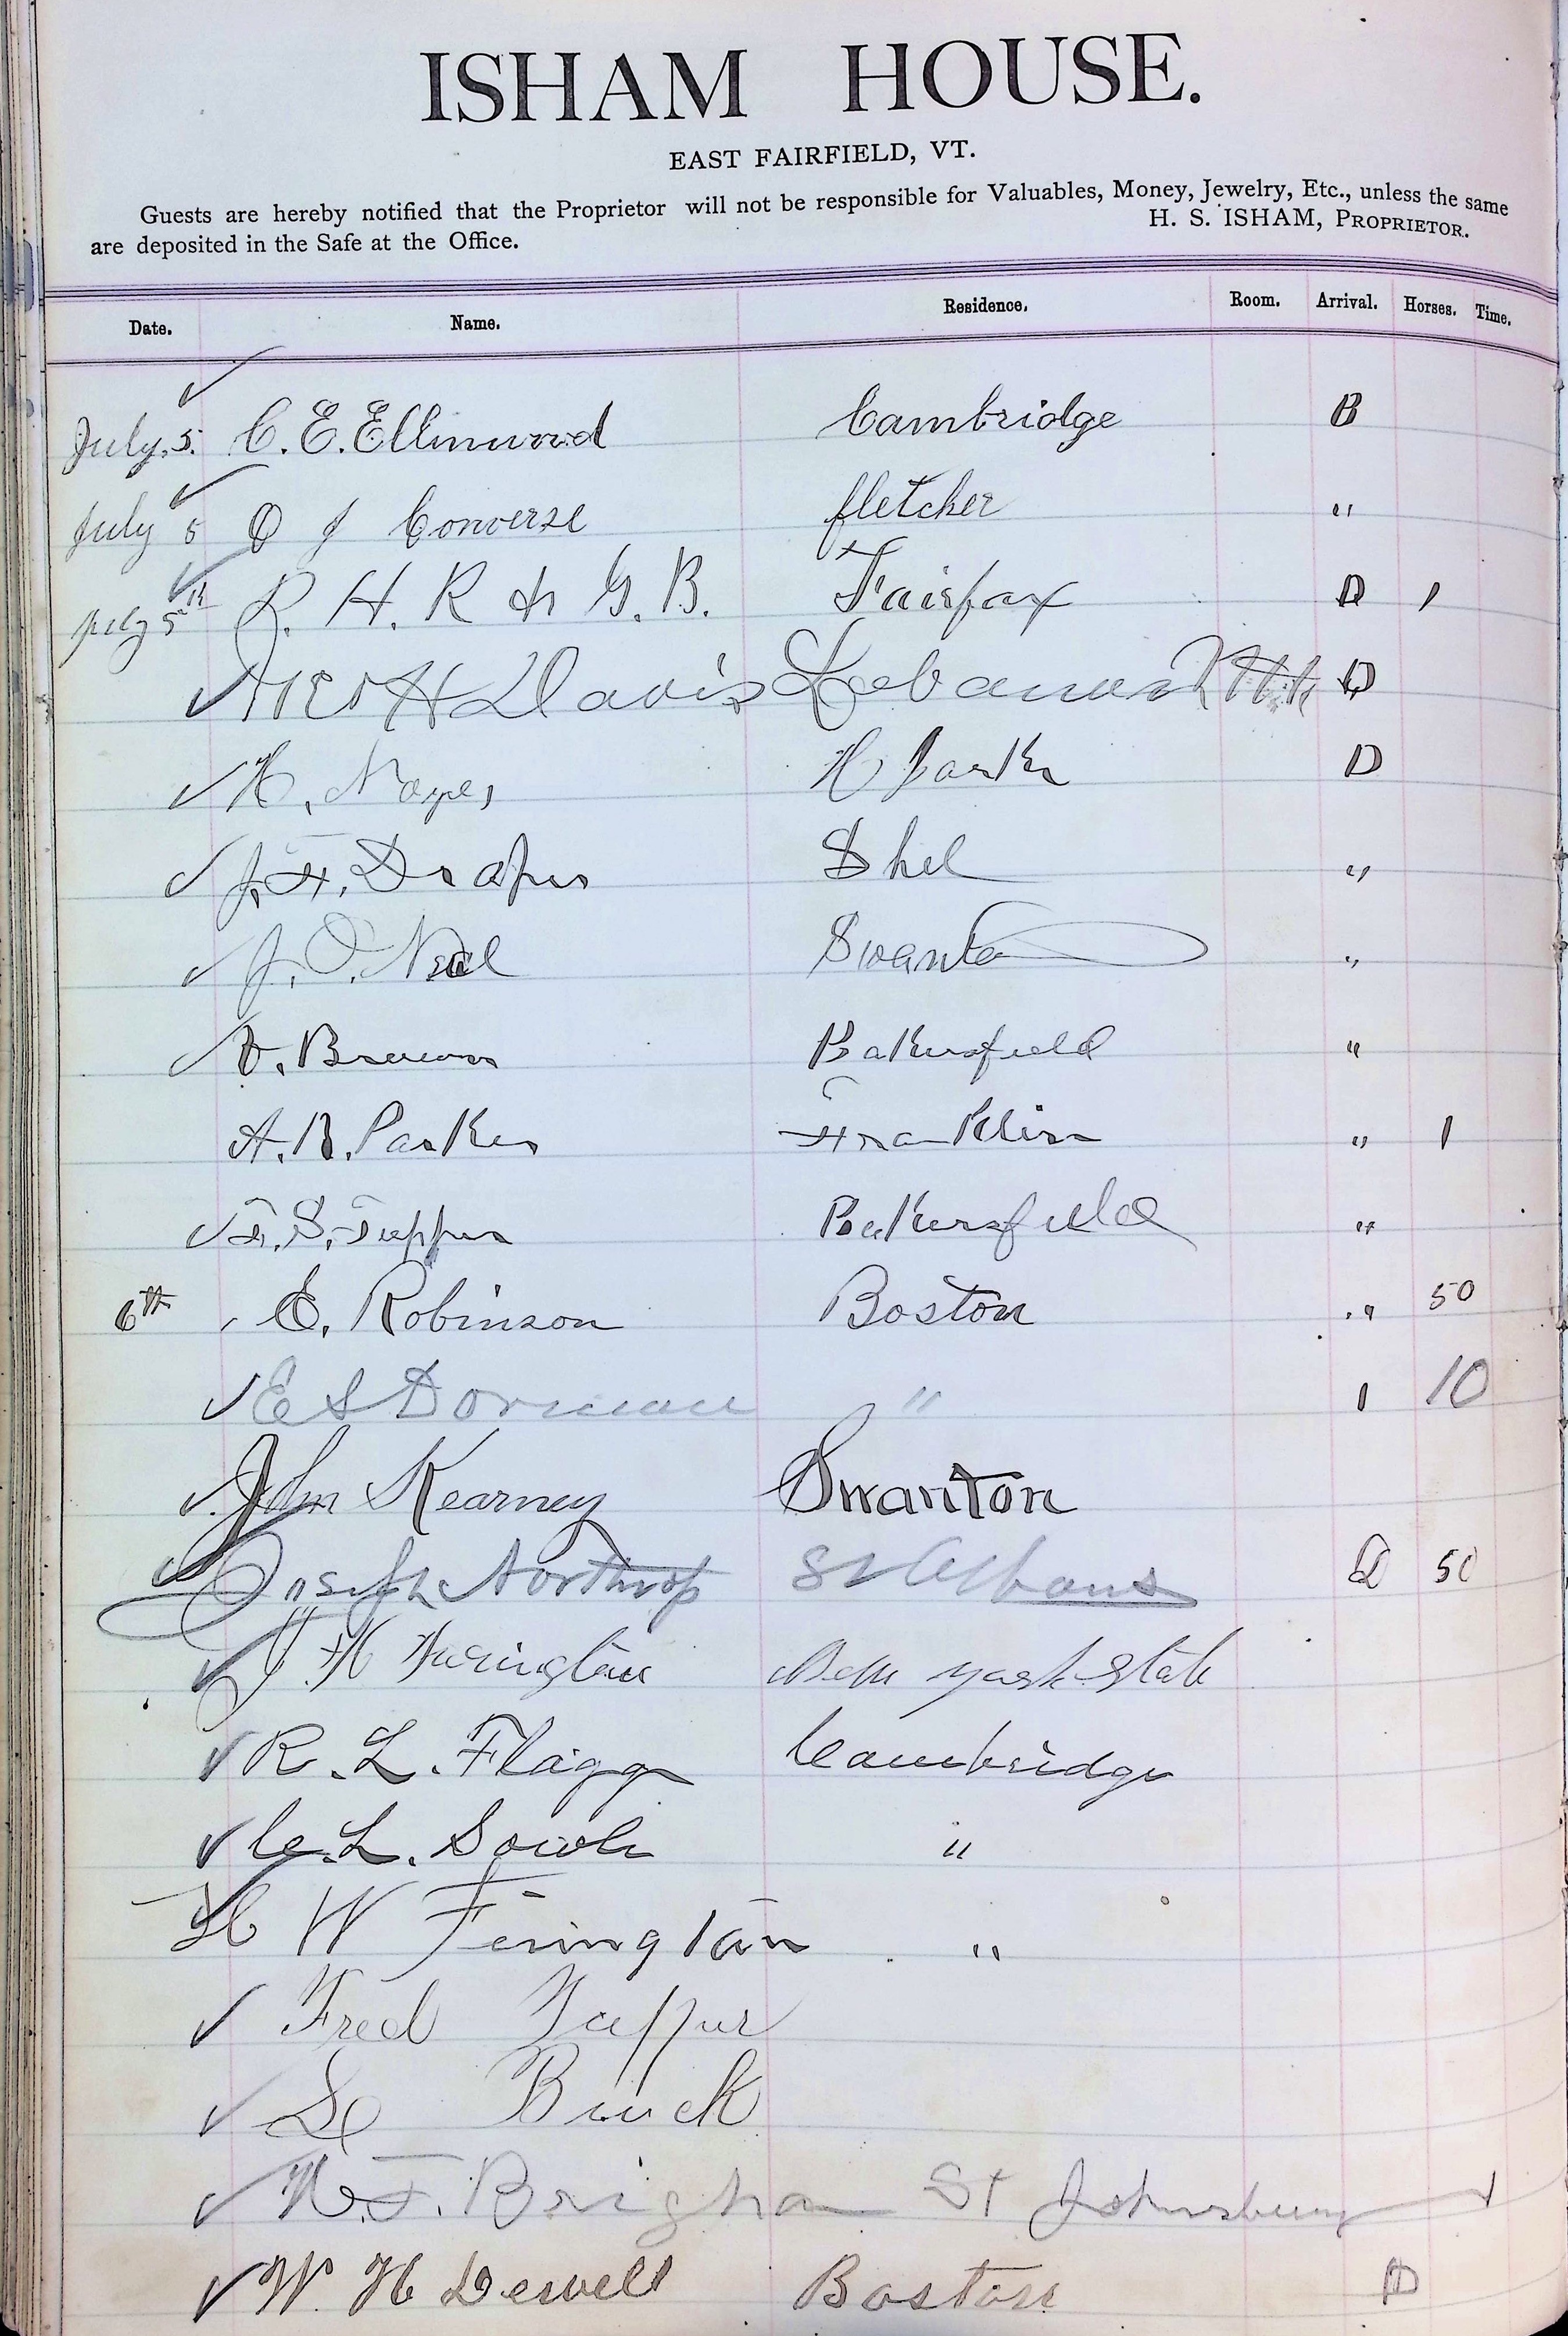 ISHAM HOUSE.
EAST FAIRFIELD, VT.
Guests are hereby notified that the Proprietor will not be responsible for Valuables, Money, Jewelry, Etc., unless the same
are deposited in the Safe at the Office. H. S. ISHAM, PROPRIETOR.
Date. Name. Residence. Room. Arrival. Horses. Time.
July. 5. C. E. Ellinwood Cambridge B
July 5 O J Converse fletcher "
July 5th R. H. R & G. B. Fairfax D 1
H Davis Lebanon N H D
H. Noyes H Park D
J. F. Draper Shel "
J. O. Neal Swanton "
V. Brown Bakersfield "
A. B. Parker Franklin " 1
F. S. Tupper Bakersfield "
6th E. Robinson Boston " 50
E S Dorman " 1 10
John Kearney Swanton
Joseph Northrop St Albans D 50
J. H New york State
R. L. Flagg Cambridge
C. L. Sowle "
H W Ferrington "
Fred
Buck
W. F. Brigham St Johnsbury 1
W. H Dewell Boston D